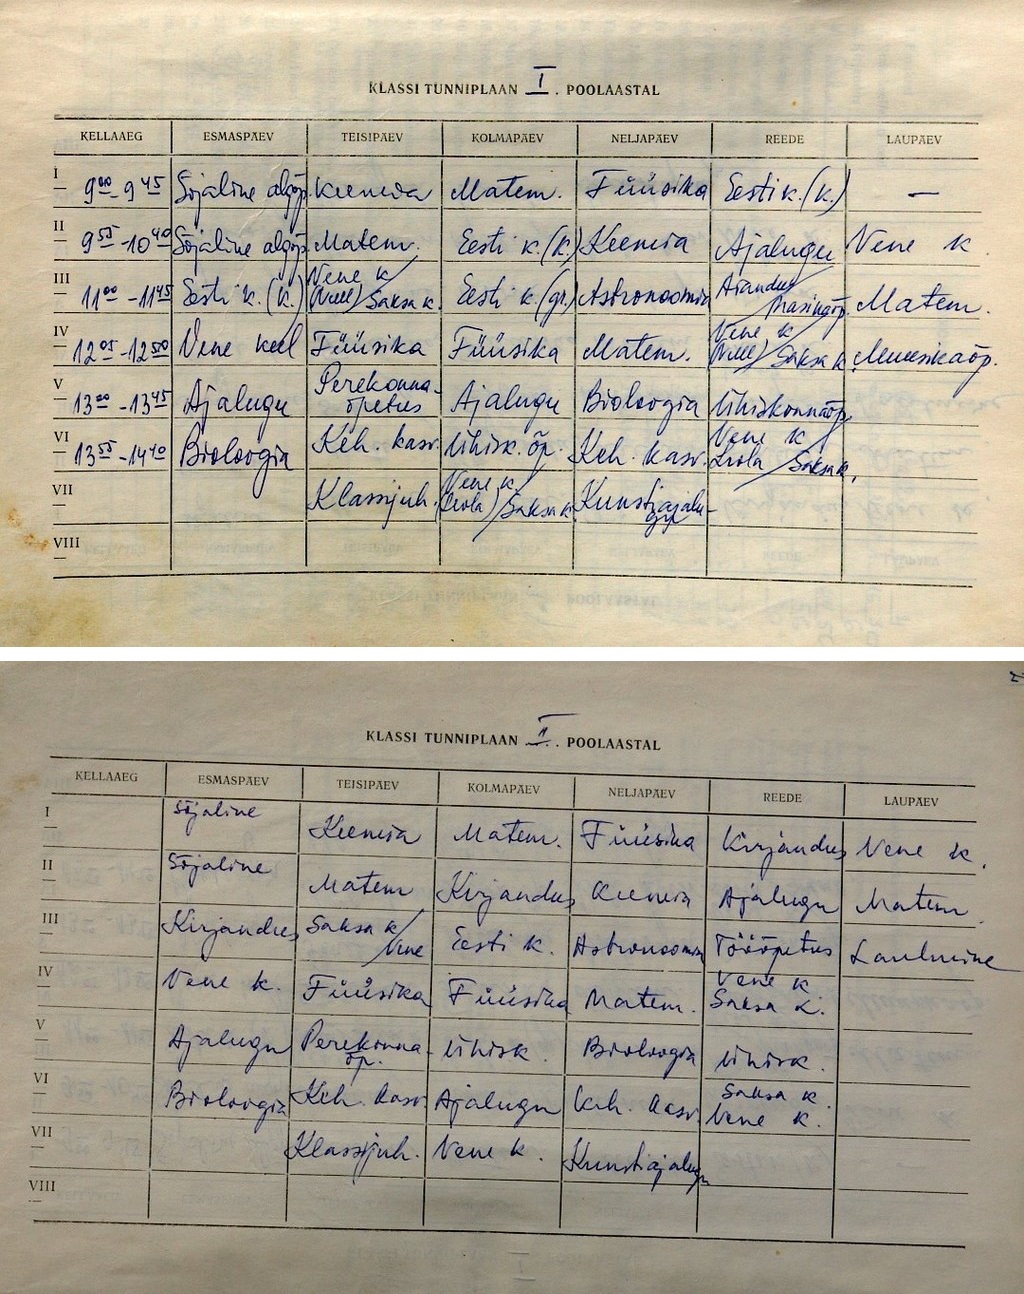 KLASSI TUNNIPLAAN I. POOLAASTAL
KELLAAEG ESMASPÄEV TEISIPÄEV KOLMAPÄEV NELJAPÄEV REEDE LAUPÄEV
I 9⁰⁰-9⁴⁵ Sõjaline algõp. Keemia Matem. Füüsika Eesti k. (k.) —
II 9⁵⁵-10⁴⁰ Sõjaline algõp. Matem. Eesti k. (k.) Keemia Ajalugu Vene k
III 11⁰⁰-11⁴⁵ Eesti k. (k.) Vene k / Saksa k. Eesti k. (gr.) Astronoomia Aiandus / masinaõp. Matem.
IV 12⁰⁵-12⁵⁰ Vene keel Füüsika Füüsika Matem. Vene k / Saksa k. Muusikaõp.
V 13⁰⁰-13⁴⁵ Ajalugu Perekonna-õpetus Ajalugu Bioloogia Ühiskonnaõp.
VI 13⁵⁵-14⁴⁰ Bioloogia Keh. kasv. Ühisk. õp. Keh. kasv. Vene k / Saksa k.
VII Klassijuh. Vene k / Saksa k Kunstiajalugu
VIII
KLASSI TUNNIPLAAN II. POOLAASTAL
KELLAAEG ESMASPÄEV TEISIPÄEV KOLMAPÄEV NELJAPÄEV REEDE LAUPÄEV
I Sõjaline Keemia Matem. Füüsika Kirjandus Vene k.
II Sõjaline Matem Kirjandus Keemia Ajalugu Matem.
III Kirjandus Saksa k / Vene Eesti k. Astronoomia Tööõpetus Laulmine
IV Vene k. Füüsika Füüsika Matem. Vene k Saksa k.
V Ajalugu Perekonna-õp. Ühisk. Bioloogia Ühisk.
VI Bioloogia Keh. kasv. Ajalugu Keh. kasv Saksa k. Vene k.
VII Klassijuh. Vene k. Kunstiajalugu
VIII